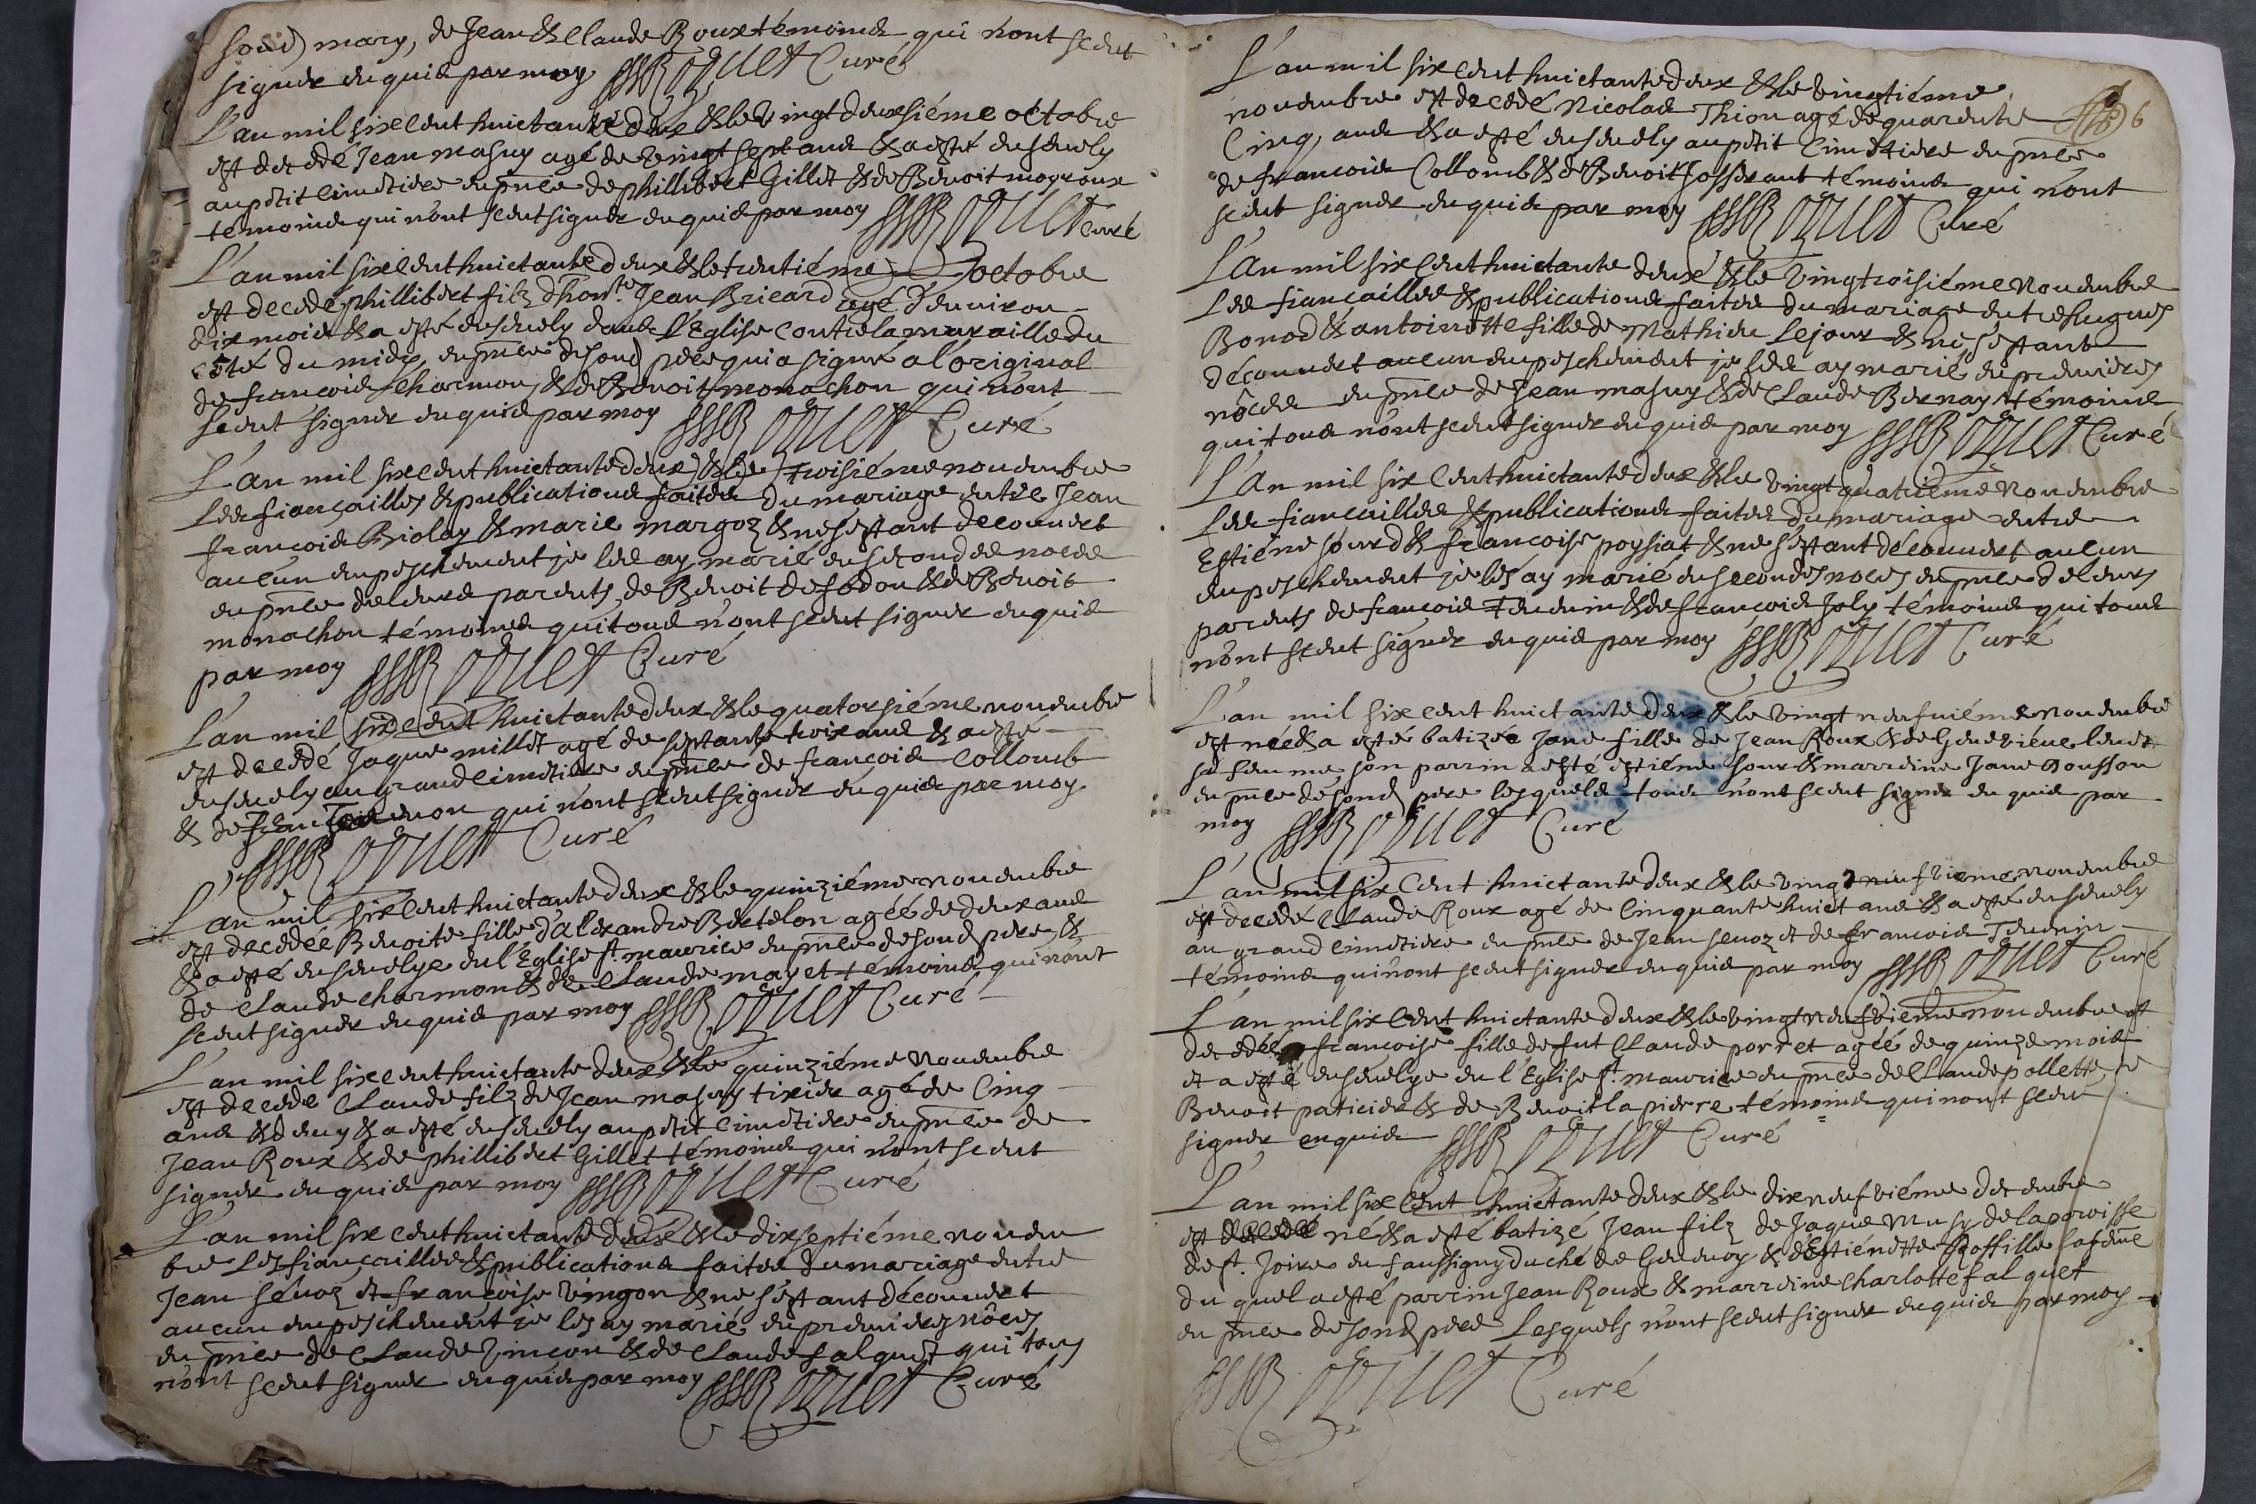 soud mary, de Jean & Claude Roux témoins qui n'ont sceut
signer enquis par moy Curé
L'an mil six cent huictante deux & le vingt deuxsiéme octobre
est decedé Jean masuy agé de vingt sept ans & a esté ensevely
au petit cimetiere en pnce de phillibert Gillet & de Benoit moyroux
témoins qui n'ont sceut signer enquis par moy Curé
L'an mil six cent huictante deux & le trentiéme octobre
est decedé phillibert filz d'honte Jean Bricard agé d'environ
dix mois & a esté ensevely dans l'Eglise contre la muraille du
côté du midy en pnce desond pere qui a signé a l'original
de francois charmon & de Benoit monachon qui n'ont
sceut signer enquis par moy Curé
L'an mil six cent huictante deux & le troisiéme novembre
Les fiançailles & publications faites du mariage entre Jean
françois Biolay & marie margoz & ne s'estant decouvert
aucun empeschement je les ay marié en secondes noces
en pnce de leurs parents, de Benoit defodon & de Benoit
monachon témoins qui tous n'ont sceut signer enquis
par moy Curé
L'an mil six cent huictante deux & le quatorsiéme novembre
est decedé Jaque millet agé de septante trois ans & a esté
ensevely au grand cimetiere en pnce de françois Collomb
& de qui n'ont sceut signer enquis par moy
Curé
L'an mil six cent huictante deux & le quinziéme novembre
est decedée Benoite fille d'Alexandre Bertelon agée de deux ans
& a esté ensevelye en l'Eglise st. maurice en pnce desond pere, &
de Claude charmon & de Claude mayet témoins, qui n'ont
sceut signer enquis par moy Curé
L'an mil six cent huictante deux & le quinziéme novembre
est decedé Claude filz de Jean masuy tixier agé de cinq
ans & demy & a esté ensevely au petit cimetiere en pnce de
Jean Roux & de phillibert Gillet témoins qui n'ont sceut
signer enquis par moy Curé
L'an mil six cent huictante deux & le dixseptiéme novem
bre Les fiançailles & publications faites du mariage entre
Jean sévoz et françoise vingon & ne s'estant découvert
aucun empeschement je les ay marié en premieres nôces
en pnce de Claude vincon & de Claude falquet qui tous
n'ont sceut signer enquis par moy Curé
L'an mil six cent huictante deux & le vingtiéme
novembre est decedé Nicolas Thion agé de quarente 6
cinq, ans & a esté ensevely au petit cimetiere en pnce
de francois Collomb & de Benoit Josserant témoins qui n'ont
sceut signer enquis par moy Curé
L'an mil six cent huictante deux & le vingtroisiéme Novembre
Les fiançailles & publications faites du mariage entre hugues
Bonod & antoinette fille de Mathieu Lejour & ne s'estant
découvert aucun empeschement je les ay marié en premieres
nôces en pnce de Jean masuy & de Claude Bernay témoins
qui tous n'ont sceut signer enquis par moy Curé
L'An mil six cent huictante deux & le vingt quatriéme Novembre
Les fiançailles & publications faites du mariage entre
Estiéne sourd & françoise poysiat & ne s'estant découvert aucun
empeschement je les ay marié en secondes noces en pnce de leurs
parents de francois Tevenin & de francois Joly témoins qui tous
n'ont sceut signer enquis par moy Curé
L'an mil six cent huictante deux & le vingt neufuiéme novembre
est née & a esté batizée Jane fille de Jean Roux & de Genevieve
sa femme son parrin a esté estiéne sour & marreine Jane Bousson
en pnce desond pere lesquels tous n'ont sceut signer enquis par
moy Curé
L'an mil six Cent huictante deux & le vingt neufvieme novembre
est decedé Claude Roux agé de Cinquante huict ans & a esté ensevely
au grand cimetiere en pnce de Jean sevoz et de francois Tevenin
témoins qui n'ont sceut signer enquis par moy Curé
L'an mil six Cent huictante deux & le vingt neufvieme novembre est
decedée françoise fille de fut Claude porret agée de quinze mois
et a esté ensevelye en l'Eglise st. maurice en pnce de Claude pollette
Benoit paticier & de Benoit lapierre témoins qui n'ont sceu
signer enquis Curé
L'an mil six cent huictante deux & le dixneufviéme decembre
est decedé né & a esté batizé Jean filz de Jaque Musy de la paroisse
de st. Joire en faussigny duché de Genevoy & d'Estiénette sa feme
du quel a esté parrin Jean Roux & marreine charlotte falquet
en pnce desond pere Lesquels n'ont sceut signer enquis par moy
Curé